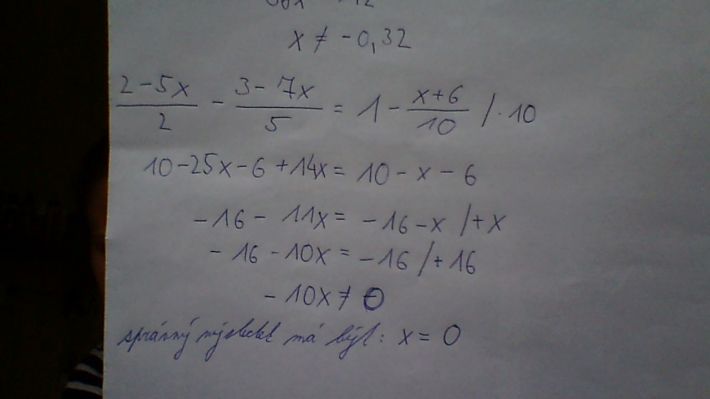 x ≠ -0,32
2-5x/2 - 3-7x/5 = 1 - x+6/10 /·10
10-25x-6+14x = 10-x-6
-16 - 11x = -16-x /+x
-16-10x = -16 /+16
-10x ≠ 0
správný výsledek má být: x = 0